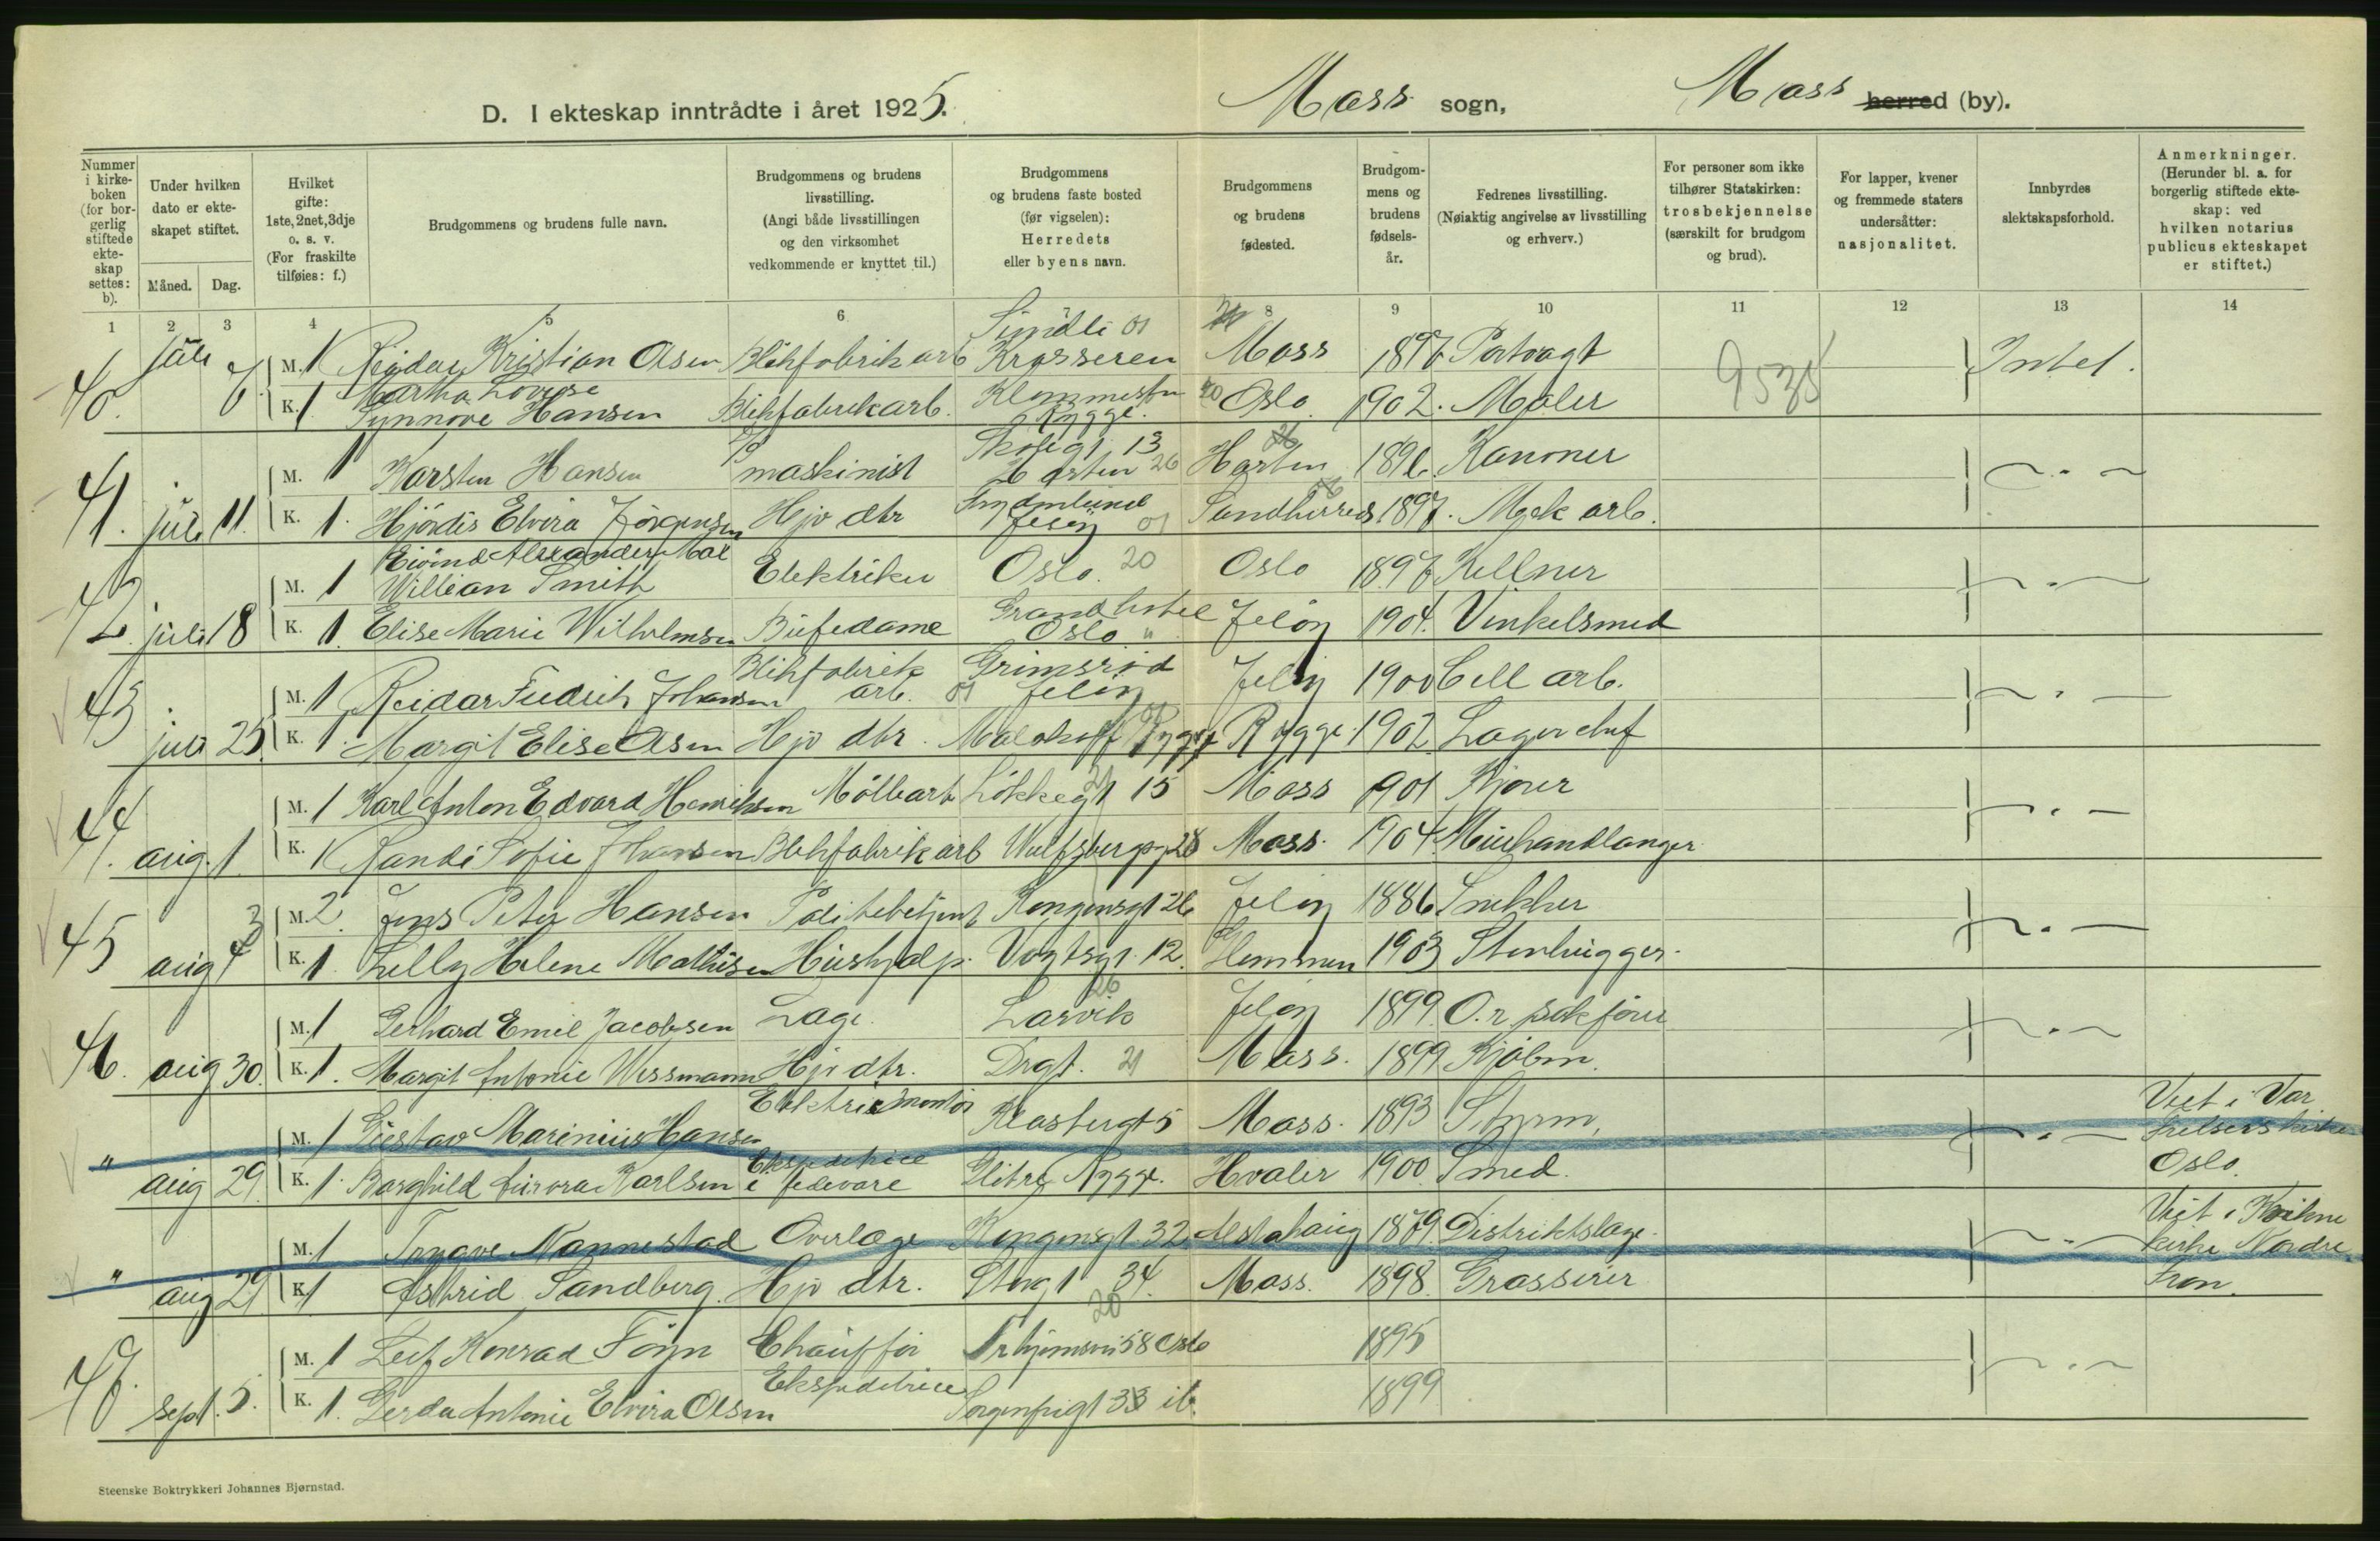 D. I ekteskap inntrådte i året 1925. Moss sogn, Moss herred (by).
Nummer i kirkeboken (for borgerlig stiftede ekteskap settes: b).
Under hvilken dato er ekteskapet stiftet.
Måned. Dag.
Hvilket gifte: 1ste, 2net, 3dje o. s. v. (For fraskilte tilføies: f.)
Brudgommens og brudens fulle navn.
Brudgommens og brudens livsstilling. (Angi både livsstillingen og den virksomhet vedkommende er knyttet til.)
Brudgommens og brudens faste bosted (før vigselen): Herredets eller byens navn.
Brudgommens og brudens fødested.
Brudgommens og brudens fødselsår.
Fedrenes livsstilling. (Nøiaktig angivelse av livsstilling og erhverv.)
For personer som ikke tilhører Statskirken: trosbekjennelse (særskilt for brudgom og brud).
For lapper, kvener og fremmede staters undersåtter: nasjonalitet.
Innbyrdes slektskapsforhold.
Anmerkninger. (Herunder bl. a. for borgerlig stiftede ekteskap: ved hvilken notarius publicus ekteskapet er stiftet.)
1 2 3 4 5 6 8 9 10 11 12 13 14
40. juli M. 1 Reidar Kristian Olsen Blikfabrikarb Krosseren Moss 1897 Portvagt Intet.
K. 1 Martha Lovise Synnove Hansen Blikfabrikarb. Rygge. Oslo 1902. Maler
41. juli 11. M. 1 Karsten Hansen maskinist Skolegt 13 Horten 26 Horten 1896. Kanoner
K. 1. Hjördis Elvira Jörgensen Hjv dtr Jelöy 01 Sandherred 1897. Mek arb.
42. juli 18 M. 1 Eivind Alexander William Smith Elektriker Oslo. 20 Oslo 1897 Kellner
K. 1. Elise Marie Wilhelmsen Büfedame Grand hotel Oslo Jelöy 1904. Vinkelsmed
43. juli 25. M. 1 Reidar Fredrik Johansen Blikfabrik arb. Grimsrød Jelöy Jelöy 1900 Cell arb.
K. 1. Margit Elise Olsen Hjv dtr. Malakoff Rygge Rygge. 1902. Lagerchef
44. aug. 1. M. 1 Karl Anton Edvard Henriksen Möllearb Lökkegt 15 Moss 1901 Kjörer
K. 1 Randi Sofie Johansen Blikfabrikarb Wulfsbergg 28 Moss. 1904. Murhandlanger
45 aug 4 M. 2. Jens Peter Hansen Politibetjent Kongensgt 26 Jelöy 1886 Snekker
K. 1. Lelly Helene Mathisen Hushjelp. Vogtsgt. 12. Glemmen 1903 Stenhugger.
46. aug 30. M. 1 Gerhard Emil Jacobsen Læge. Larvik Jelöy 1899. O.r. sakförer
K. 1. Margit Antonie Wessmann Hjv dtr. Drgt. 21 Moss. 1899 Kjöbm.
" aug 29. M. 1 Gustav Marinius Hansen Elektrisk montör Kleabergt 5 Moss. 1893 Styrm. Viet i Vor
K. 1. Borghild Aurora Karlsen Ekspeditrice i fedevare Glitre Rygge. Hvaler 1900. Smed. Frelsers kirke Oslo.
" aug 29. M. 1 Trygve Nannestad Overlæge Kongensgt. 32. Alstahaug 1879. Distriktslæge. Viet i Kvikne
K. 1 Astrid Sandberg. Hjv dtr. Storgt 34. Moss. 1898. Grosserer kirke Nordre Fron.
47. sept. 5. M. 1 Leif Konrad Föyn Chauffør 58 Oslo 1895
K. 1. Gerda Antonie Elvira Olsen Ekspeditrice Sorgenfrigt 33 ib. 1899
Steenske Boktrykkeri Johannes Bjørnstad.